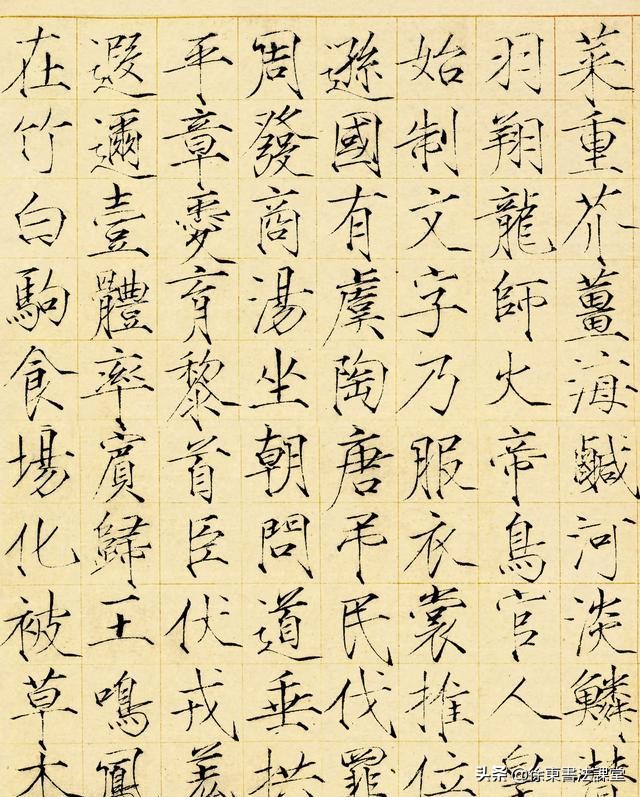 菜重芥薑海鹹河淡鱗潛
羽翔龍師火帝鳥官人皇
始制文字乃服衣裳推位
遜國有虞陶唐吊民伐罪
周發商湯坐朝問道垂拱
平章愛育黎首臣伏戎羌
遐邇壹體率賓歸王鳴鳳
在竹白駒食場化被草木
头条 @徐東書法課堂